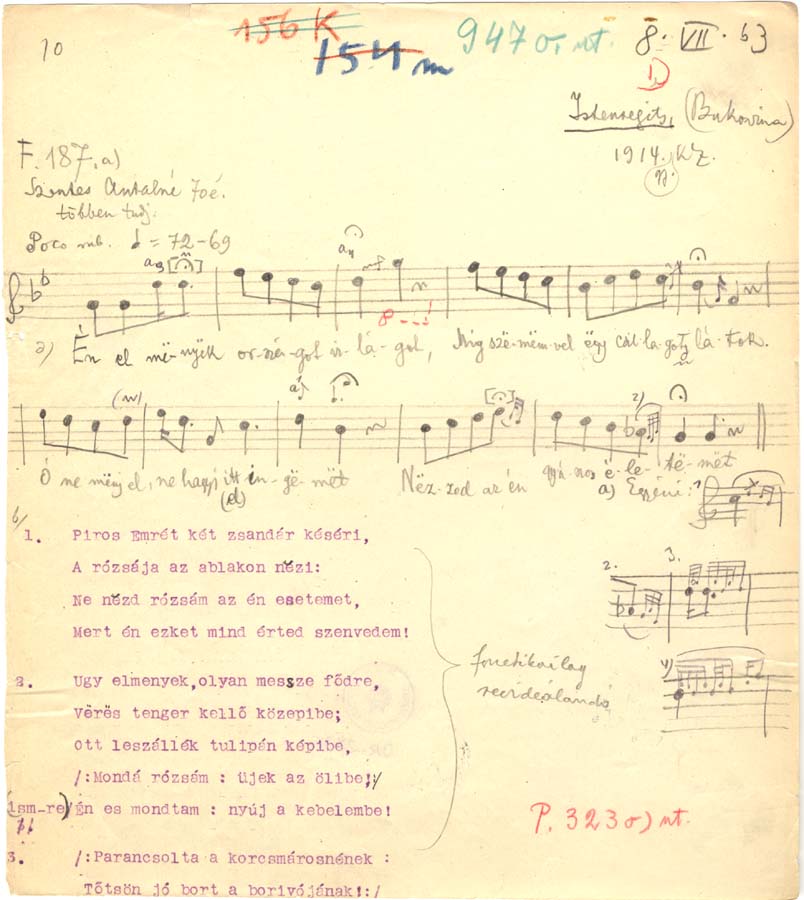 10
156 K
154 m
947 o. nt.
8. VII. b3
1)
Istensegits, (Bukovina)
1914. KZ.
F. 187. a)
Szentes Antalné 70é.
többen tudj.
Poco rub. = 72-69
8
a) Én el më-nyëk or-szá-got vi-lá-got, Míg szë-mëm-vel ëgy csil-la-got lá-tok.
2)
Ó ne mënj el, ne hagyj itt ën-gë-mët Nëz-zed az én gyá-nos é-le-të-mët
(el)
a) Egyéni:
1.
b/
1. Piros Emrét két zsandár késéri,
A rózsája az ablakon nézi:
Ne nézd rózsám az én esetemet,
Mert én ezket mind érted szenvedem!
2.
3.
2. Ugy elmenyek,olyan messze fődre,
Vërës tenger kellő közepibe;
Ott leszállék tulipán képibe,
/:Mondá rózsám : üjek az ölibe!/
(ism-re)/Én es mondtam : nyúj a kebelembe!
fonetikailag
revideálandó
4)
P. 323 o) nt.
3. /:Parancsolta a korcsmárosnének :
Tőtsön jó bort a borivójának!:/